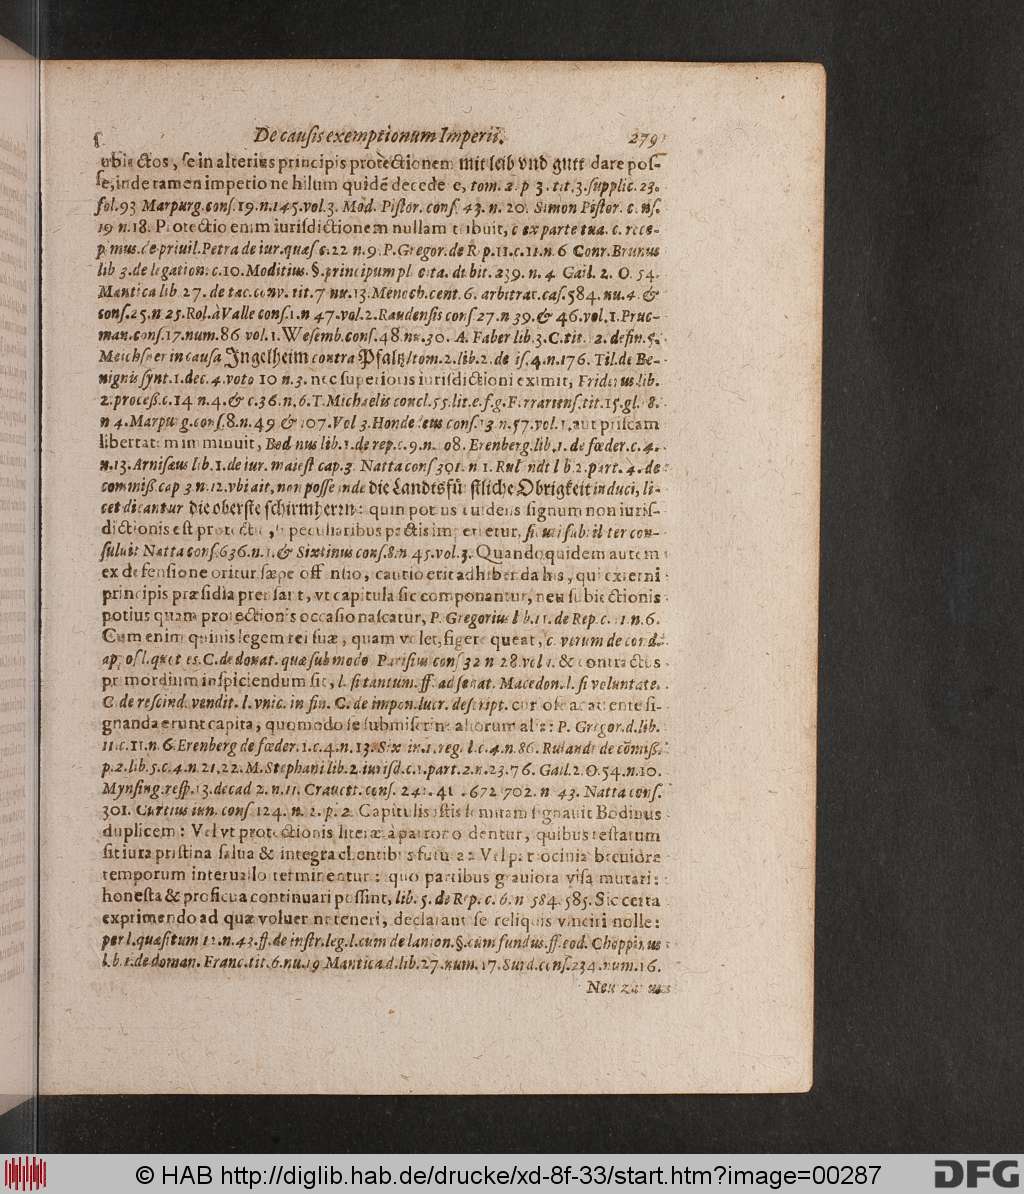 De causis exemptionum Imperii. 279
ubiectos, se in alterius principis protectionem mit leib und gutt dare pos-
se, inde tamen imperio ne hilum quidē decedere, tom. 2. p 3. tit. 3. supplic. 23.
fol. 93 Marpurg. cons. 19. n. 145. vol. 3. Mod. Pistor. cons. 43. n. 20. Simon Pistor. c. ns.
19 n. 18. Protectio enim iurisdictionem nullam tribuit, c ex parte tua. c. rece-
pimus. de priuil. Petra de iur. quæs c. 22 n. 9. P. Gregor. de R p. 11. c. 11. n. 6 Conr. Brunus
lib 3. de legation. c. 10. Moditius. §. principum pl cita. dubit. 239. n. 4. Gail. 2. O. 54.
Mantica lib 27. de tac. conv. tit. 7 nu. 13. Menoch. cent. 6. arbitrar. cas. 584. nu. 4. &
cons. 25. n 25. Rol. à Valle cons. 1. n 47. vol. 2. Raudensis cons 27. n 39. & 46. vol. 1. Pruc-
man. cons. 17. num. 86 vol. 1. Wesemb. cons. 48. nu. 30. A. Faber lib. 3. C. tit. 2. defin. 5.
Meichsner in causa Ingelheim contra Pfaltz/ tom. 2. lib. 2. de is. 4. n. 176. Til. de Be-
nignis synt. 1. dec. 4. voto 10 n. 3. nec superioris iurisdictioni eximit, Friderus lib.
2. proceß. c. 14 n. 4. & c. 36. n. 6. T. Michaelis concl. 55. lit. e. f. g. Ferrariens. tit. 15. gl. 8.
n 4. Marpurg. cons. 8. n. 49 & 107. Vol 3. Hondedeus cons. 13 n. 57. vol. 1. aut priscam
libertatem imminuit, Bodinus lib. 1. de rep. c. 9. n. 108. Erenberg. lib. 1. de fœder. c. 4.
n. 13. Arnisæus lib. 1. de iur. maiest cap. 3. Natta cons 301. n 1. Rulandt l b 2. part. 4. de
commiß. cap 3. n. 12. vbi ait, non posse inde die Landtsfürstliche Obrigkeit induci, li-
cet dicantur die oberste schirmherrn: quin potius euidens signum non iuris-
dictionis est protectio, si peculiaribus pactis impertietur, sicuti subtiliter con-
suluit Natta cons. 636. n. 1. & Sixtinus cons. 8. n 45. vol. 3. Quandoquidem autem
ex defensione oritur sæpe offensio, cautio erit adhibenda his, qui externi
principis præsidia prensant, vt capitula sic componantur, neu subiectionis
potius quam protectionis occasio nascatur, P. Gregorius l b. 11. de Rep. c. 11. n. 6.
Cum enim quiuis legem rei suæ, quam velet, figere queat, c. verum de cond.
appos l. quoties. C. de donat. quæ sub modo Parisius cons 32 n 28. vol 1. & contractus
primordium inspiciendum sit, l. si tantum. ff. ad senat. Macedon. l. si voluntate.
C. de rescind. vendit. l. vnic. in fin. C. de impon. lucr. descript. curiose ac attente si-
gnanda erunt capita, quomodo se submiserint aliorum alis: P. Gregor. d. lib.
11. c. 11. n. 6. Erenberg de fœder. 1. c. 4. n. 13. Six in. 1. reg. l. c. 4. n. 86. Rulandt de cōmiß.
p. 2. lib. 5. c. 4. n. 21. 22. M. Stephani lib. 2. iurisd. c. 1. part. 2. n. 23. 76. Gail. 2. O. 54. n. 10.
Mynsing. resp. 13. decad 2. n. 11. Crauett. cons. 241. 41 . 672 702. n 43. Natta cons.
301. Curtius iun. cons 124. n. 2. p. 2. Capitulis istis semitam signauit Bodinus
duplicem: Vel vt protectionis literæ à patrono dentur, quibus testatum
sit iura pristina salua & integra clientibus futura: Vel patrocinia breuiore
temporum interuallo terminentur: quo partibus grauiora visa mutari:
honesta & proficua continuari possint, lib. 5. de Rep. c. 6. n 584. 585. Sic certa
exprimendo ad quæ voluer nt teneri, declarant se reliquis vinciri nolle:
per l. quæsitum 12. n. 43. ff. de instr. leg. l. cum de lanion. §. cum fundus. ff. eod. Choppinus
l. b. 1. de doman. Franc. tit. 6. nu. 19 Mantica d. lib. 27. num. 17. Surd. cons. 234. num. 16.
© HAB http://diglib.hab.de/drucke/xd-8f-33/start.htm?image=00287
DFG